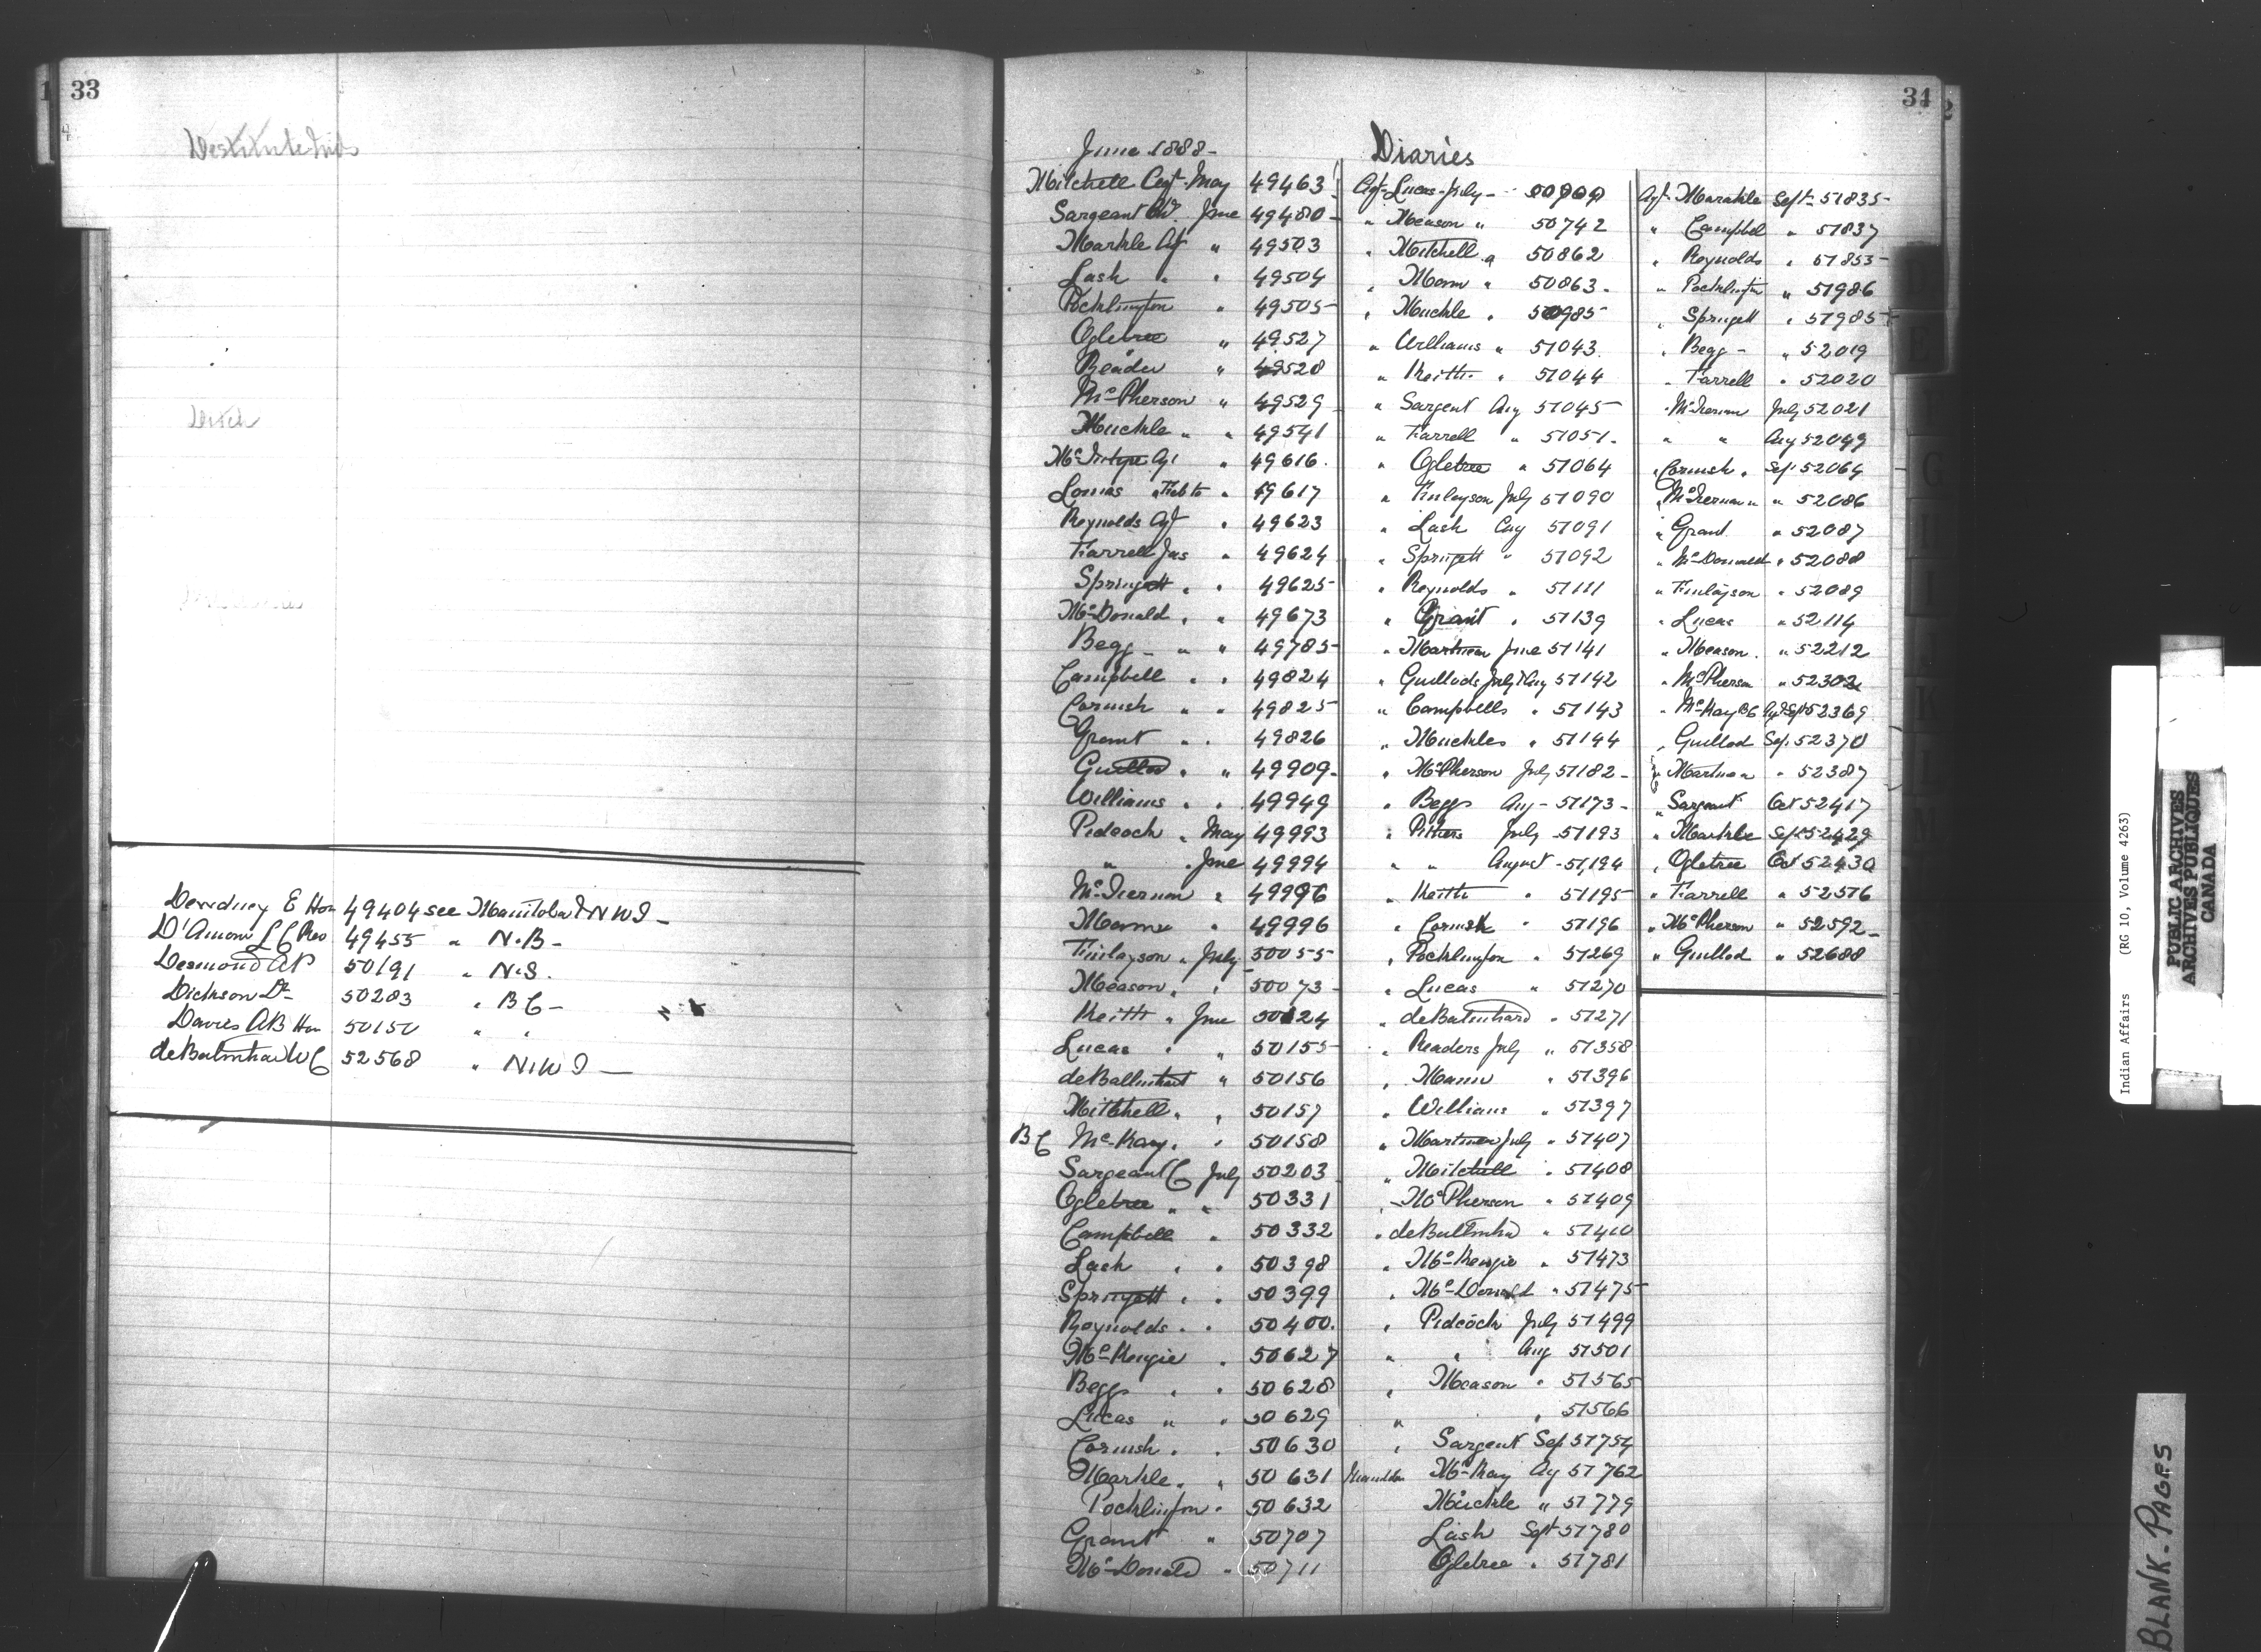 33
Destitute Inds
Dewdney E Hon 49404 see Manitoba & N W T -
D'Amour L C Rev 49455 " N.B -
Desmond A P 50191 " N.S.
Dickson Dr 50283 " B C -
Davies A B Hon 50150 " "
deBalinhard W C 52568 " N.W T -
34
June 1888 -
Diaries
Mitchell Agt May 49463
Sargeant June 49480 -
Markle Agt " 49503
Lash " " 49504
Pocklington " 49505 -
Ogletree " 49527
Reader " 49528
McPherson " 49529
Muckle " " 49541
McIntype Agt " 49616.
Lomas " Feb to " 49617
Reynolds Agt " 49623
Farrell Jas " 49624
Springett " " 49625
McDonald " " 49673
Begg - " " 49785 -
Campbell " " 49824
Cornish " " 49825
Grant " " 49826
Guillod " " 49909 -
Williams " " 49949
Pidcock " May 49993
" " June 49994
McTiernan " 49996
Manne " 49996
Finlayson " July 50055
Meason " " 50073 -
Keith " June 50124
Lucas " " 50155
deBallinhart " 50156
Mitchell " " 50157
B C McKay " " 50158
Sargeant C July 50203
Ogletree " " 50331
Campbell " 50332
Lash " " 50398
Springett " " 50399
Reynolds " " 50400.
McKenzie " 50627
Beggs " " 50628
Lucas " " 50629
Cornish " " 50630
Markle " " 50631
Pocklington " 50632
Grant " 50707
McDonald " 50711
Agt Lucas - July -
" Meason " 50742
" Mitchell " 50862
" Mann " 50863 -
" Muckle " 50985
" Williams " 51043.
" Keith " 51044
" Sargent Aug 51045
" Farrell " 51051.
" Ogletree " 51064
" Finlayson July 51090
" Lash Aug 51091
" Springett " 51092
" Reynolds " 51111
" Grant " 51139
" Martineau June 51141
" Guillods July & Aug 51142
" Campbells " 51143
" Muckles " 51144
" McPherson July 51182 -
" Beggs Aug - 51173 -
" Pithers July - 51193
" " August - 51,194
" Keith " 51195
" Cornish " 51196
" Pocklington " 51269
" Lucas " 51270
" deBalinhard " 51271
" Readers July " 51358
" Mann " 51396
" Williams " 51397
" Martineau July " 51407
" Mitchell " 51408
" McPherson " 51409
" deBallinhd " 51410
" McKenzie " 51473
" McDonald " 51475
" Pidcock July 51499
" " Aug 51501
" Meason " 51565
" " 51566
" Sargent Sep 51754
McKay Ag 51762
Muckle " 51779
Lash Sept 51780
Ogletree " 51781
Agt Marakle Sept 51835 -
" Campbel " 51837
" Reynolds " 51853 -
" Pocklington " 51986
" Springett " 51985
" Begg - " 52019
" Farrell " 52020
" McTiernan July 52021
" " Aug 52049
" Cornish " Sep 52064
" McTiernan " " 52086
" Grant " 52087
" McDonald " 52088
" Finlayson " 52089
" Lucas " 52114
" Meason " 52212
" McPherson " 52302
" McKay BC Ag & Sept 52369
" Guillod Sep. 52370
" Martineau " 52387
" Sargeant Oct 52417
" Markle Sep 52429
" Ogletree Oct 52430
" Farrell " 52516
" McPherson " 52592 -
" Guillod " 52688
Indian Affairs (RG 10, Volume 4263)
PUBLIC ARCHIVES
ARCHIVES PUBLIQUES
CANADA
BLANK - PAGES